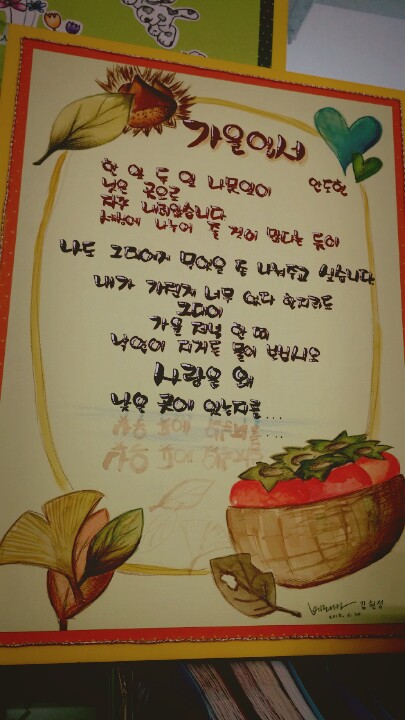 가을엽서
안도현
한 잎 두 잎 나뭇잎이
낮은 곳으로
자꾸 내려앉습니다
세상에 나누어 줄 것이 많다는 듯이
나도 그대에게 무엇을 좀 나눠주고 싶습니다
내가 가진게 너무 없다 할지라도
그대여
가을 저녁 한 때
낙엽이 지거든 물어 보십시오
사랑은 왜
낮은 곳에 있는지를...